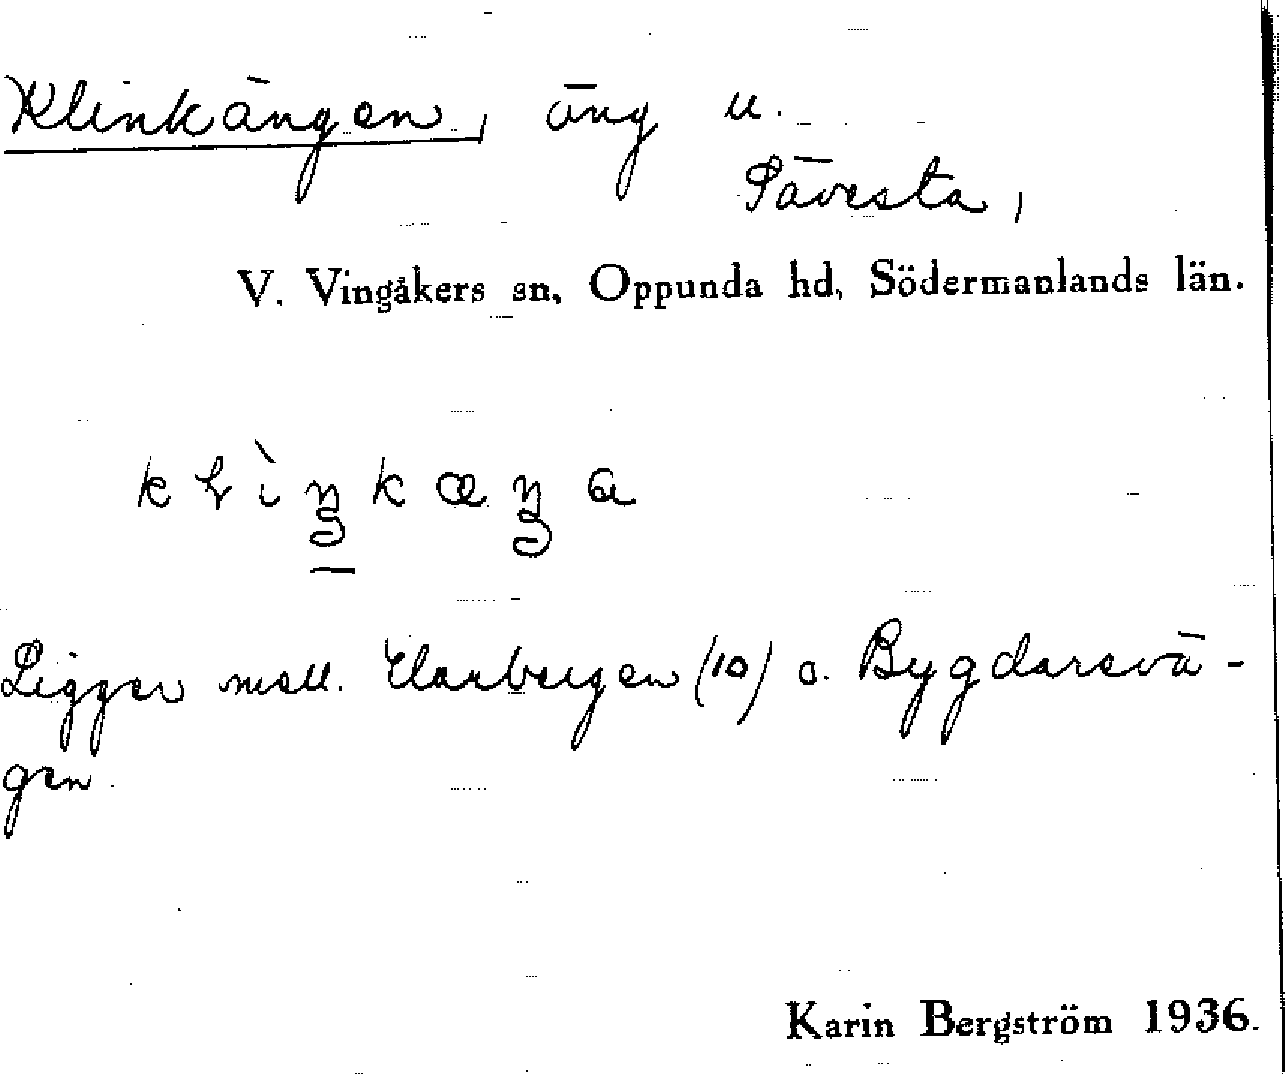 Klinkängen, äng u.
Pävesta,
V. Vingåkers sn, Oppunda hd, Södermanlands län.
Ligger mell. (10) o. Bygdarsvä-
gen.
Karin Bergström 1936.